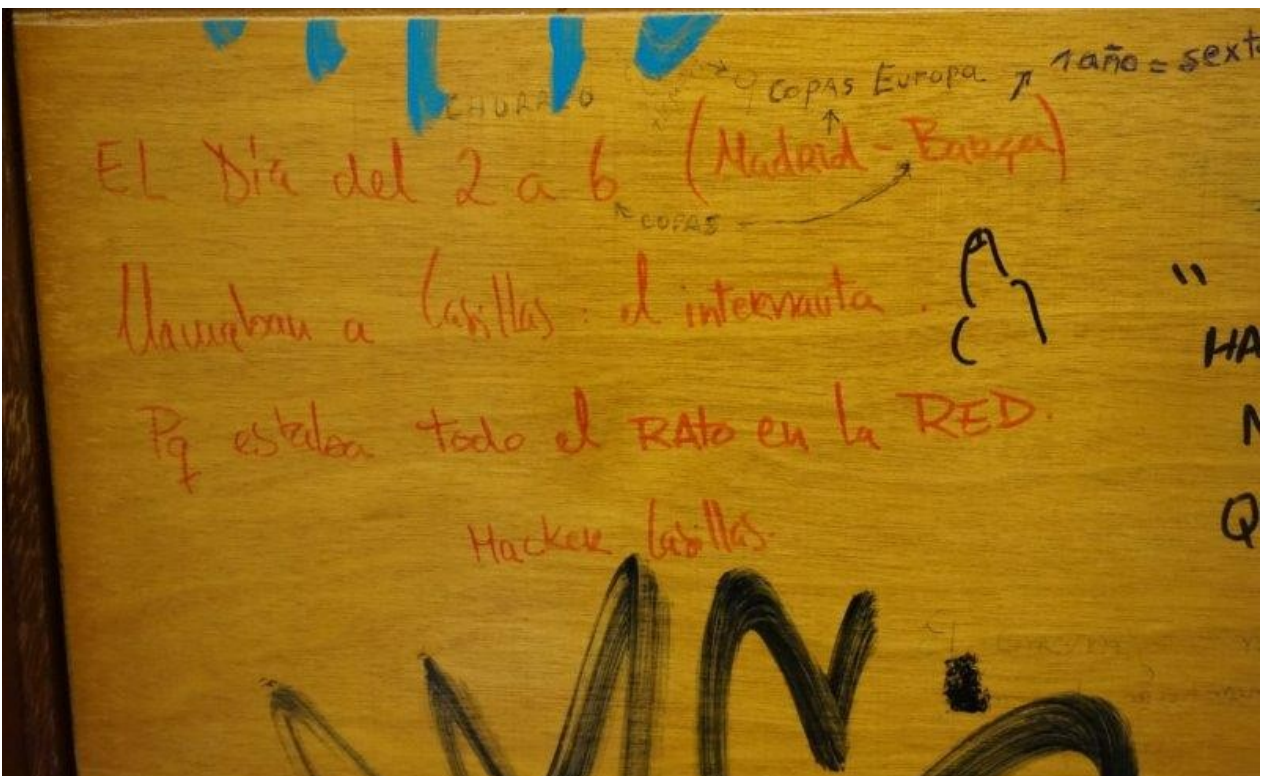 9 COPAS Europa 1 año = sext
CHORRO
EL Día del 2 a 6 (Madrid - Barça)
COPAS
llamaban a Casillas: el internauta.
Pq estaba todo el RAto en la RED.
Hacker Casillas.
"
HA
N
Q